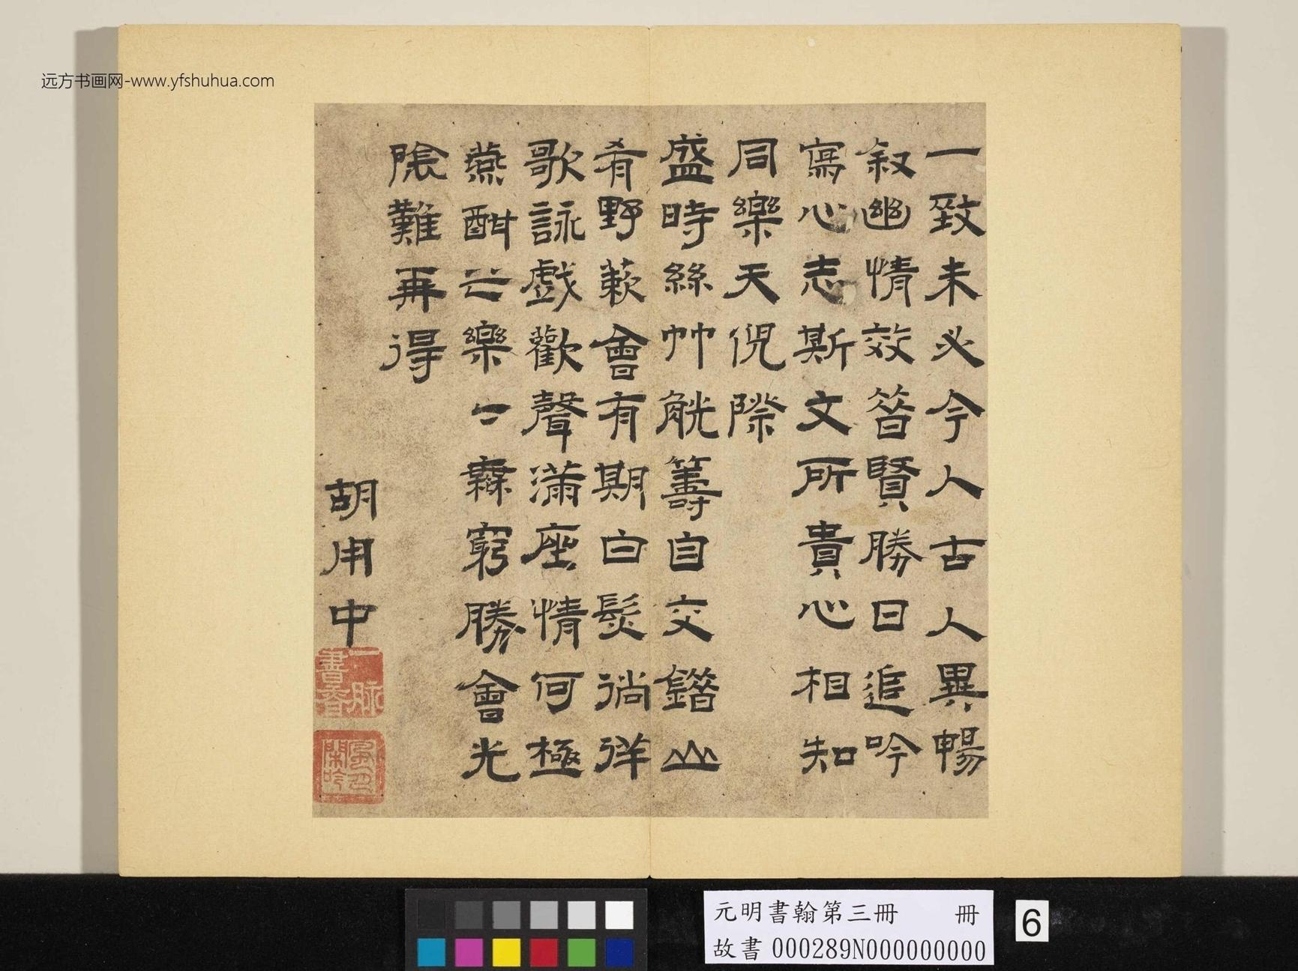 远方书画网-www.yfshuhua.com
一致未必今人古人異暢
叙幽情效昝賢勝日追吟
寫心志斯文所貴心相知
同樂天倪際
盛時絲艸觥籌自交錯山
肴野蔌會有期白髮徜徉
歌詠戲歡聲滿座情何極
燕酣之樂〻霖窮勝會光
陰難再得
胡用中
元明書翰第三冊 冊
故書 000289N000000000
6